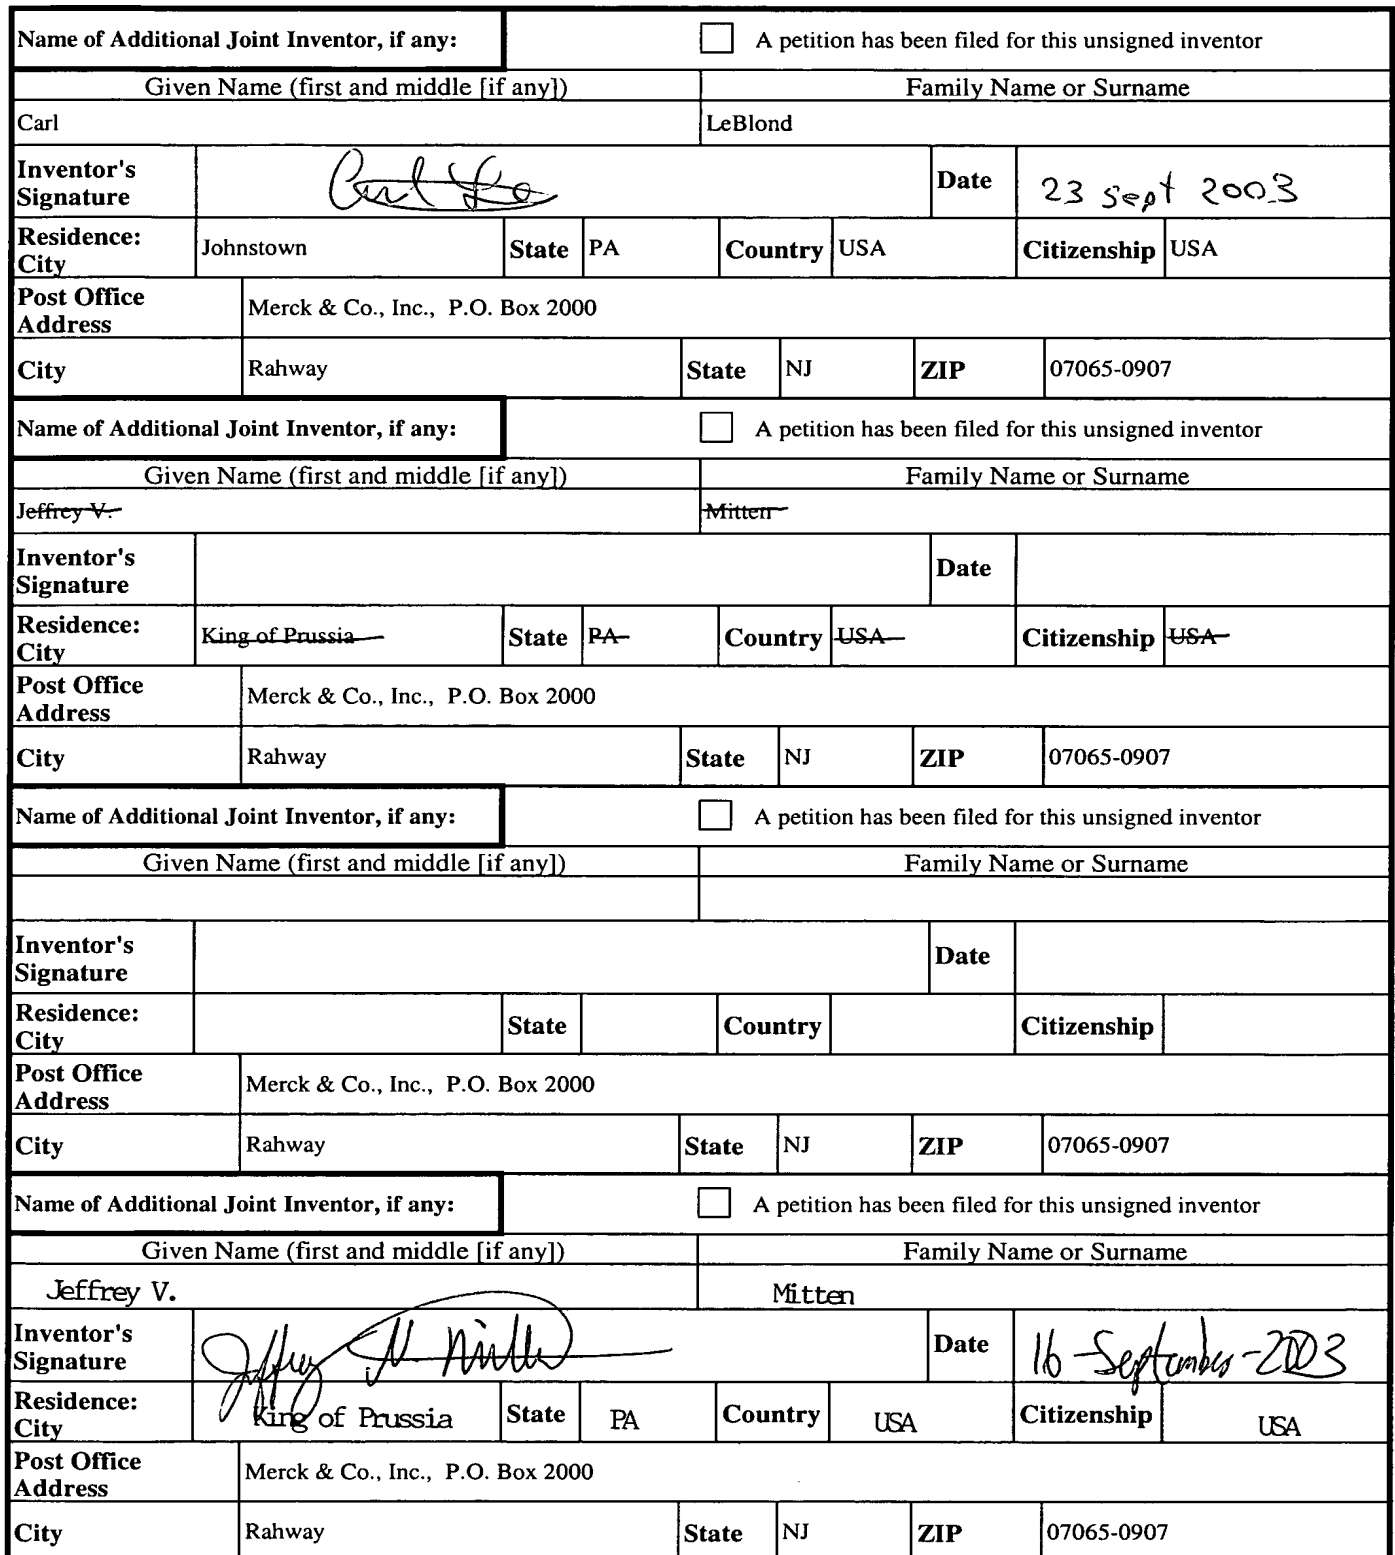 Name of Additional Joint Inventor, if any: A petition has been filed for this unsigned inventor
Given Name (first and middle [if any]) Family Name or Surname
Carl LeBlond
Inventor's Signature Date 23 Sept 2003
Residence: City Johnstown State PA Country USA Citizenship USA
Post Office Address Merck & Co., Inc., P.O. Box 2000
City Rahway State NJ ZIP 07065-0907
Name of Additional Joint Inventor, if any: A petition has been filed for this unsigned inventor
Given Name (first and middle [if any]) Family Name or Surname
Jeffrey V. Mitten
Inventor's Signature Date
Residence: City King of Prussia State PA Country USA Citizenship USA
Post Office Address Merck & Co., Inc., P.O. Box 2000
City Rahway State NJ ZIP 07065-0907
Name of Additional Joint Inventor, if any: A petition has been filed for this unsigned inventor
Given Name (first and middle [if any]) Family Name or Surname
Inventor's Signature Date
Residence: City State Country Citizenship
Post Office Address Merck & Co., Inc., P.O. Box 2000
City Rahway State NJ ZIP 07065-0907
Name of Additional Joint Inventor, if any: A petition has been filed for this unsigned inventor
Given Name (first and middle [if any]) Family Name or Surname
Jeffrey V. Mitten
Inventor's Signature Jeffrey V. Mitten Date 16-September-2003
Residence: City King of Prussia State PA Country USA Citizenship USA
Post Office Address Merck & Co., Inc., P.O. Box 2000
City Rahway State NJ ZIP 07065-0907